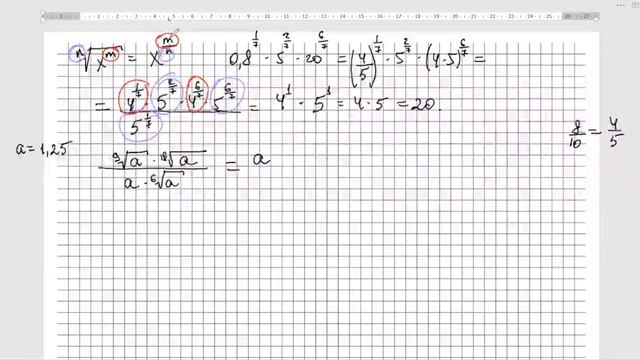 ⁿ√x^m = x^(m/n)   0,8^(1/7) · 5^(2/7) · 20^(6/7) = (4/5)^(1/7) · 5^(2/7) · (4·5)^(6/7) =
= (4^(1/7) · 5^(2/7) · 4^(6/7) · 5^(6/7)) / 5^(1/7) = 4^1 · 5^1 = 4 · 5 = 20.
8/10 = 4/5
a = 1,25   (⁹√a · ¹⁸√a) / (a · ⁶√a) = a